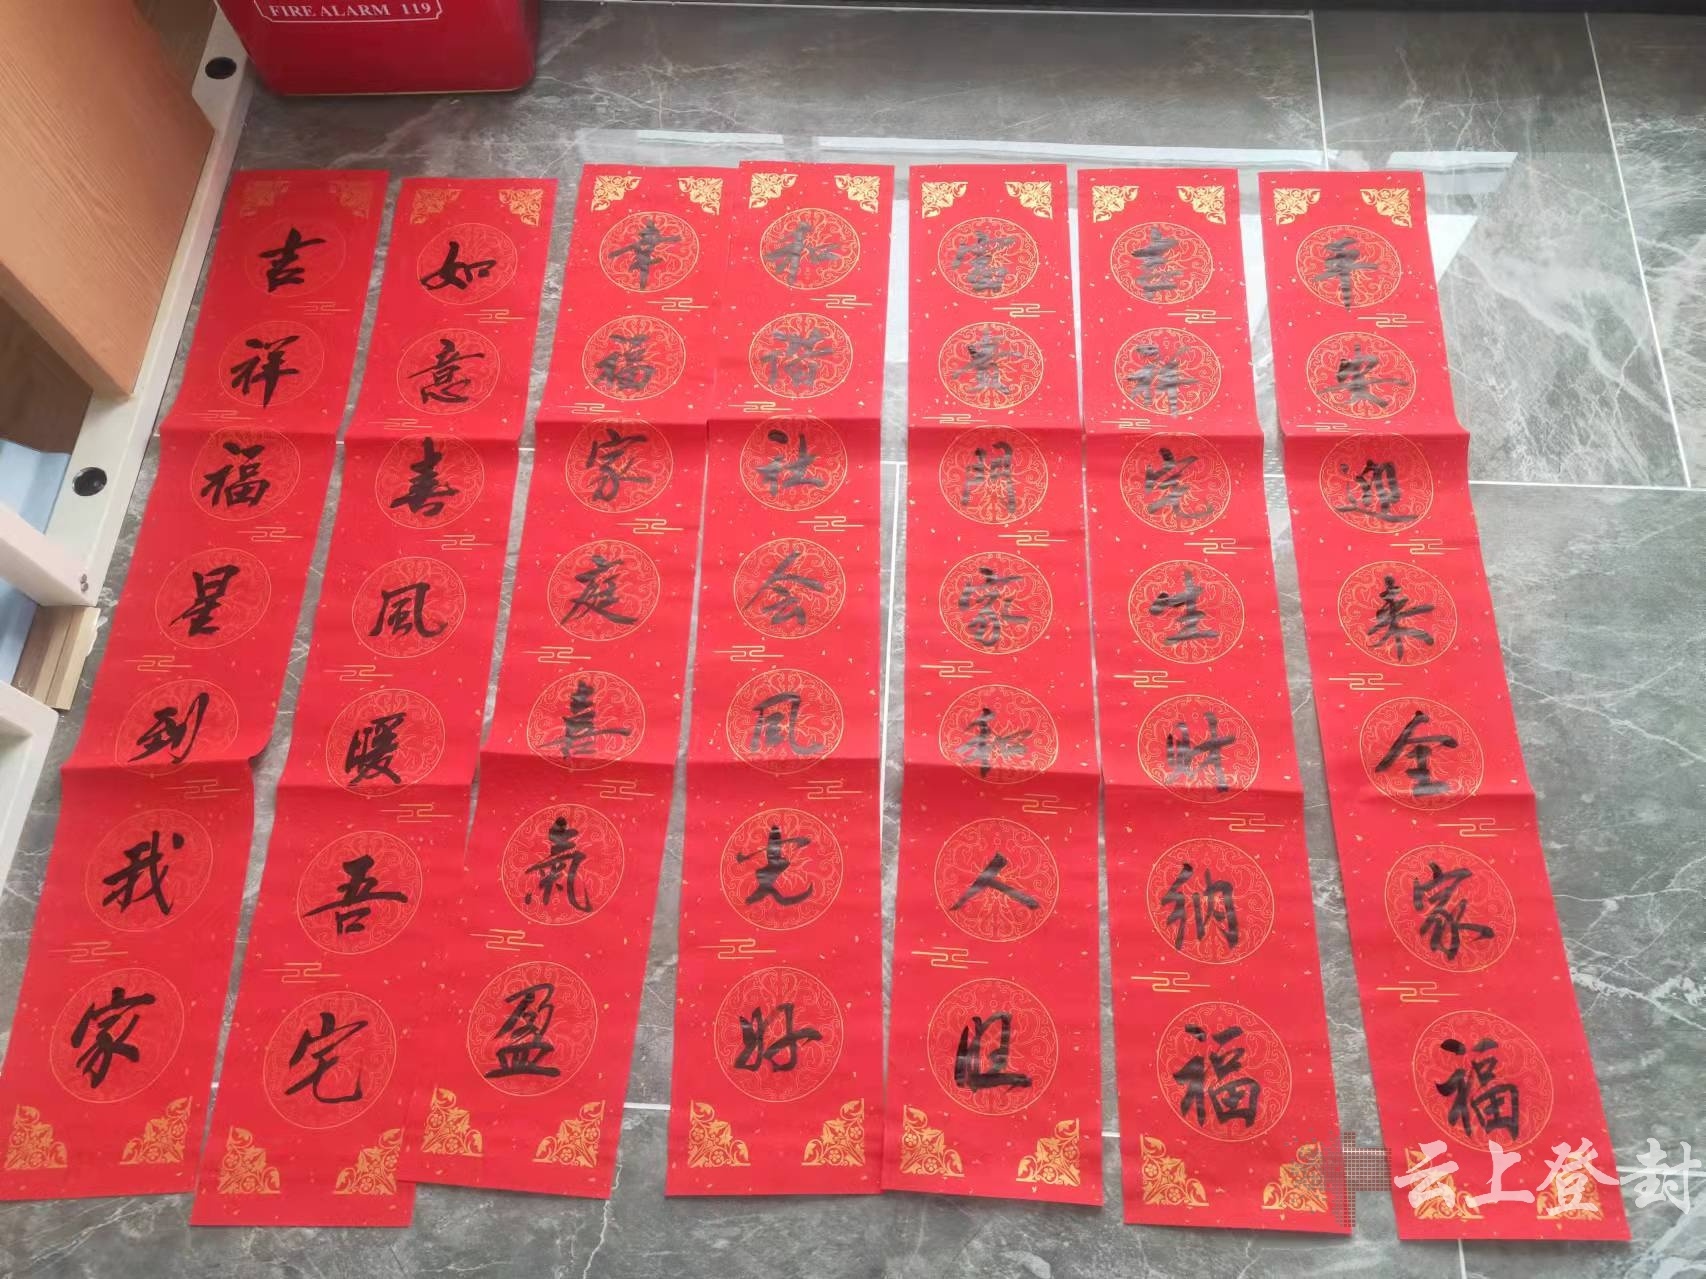 FIRE ALARM 119
吉祥福星到我家
如意喜風暖吾宅
幸福家庭喜氣盈
和谐社会风光好
富贵門家和人旺
吉祥宅生财纳福
平安迎来全家福
云上登封